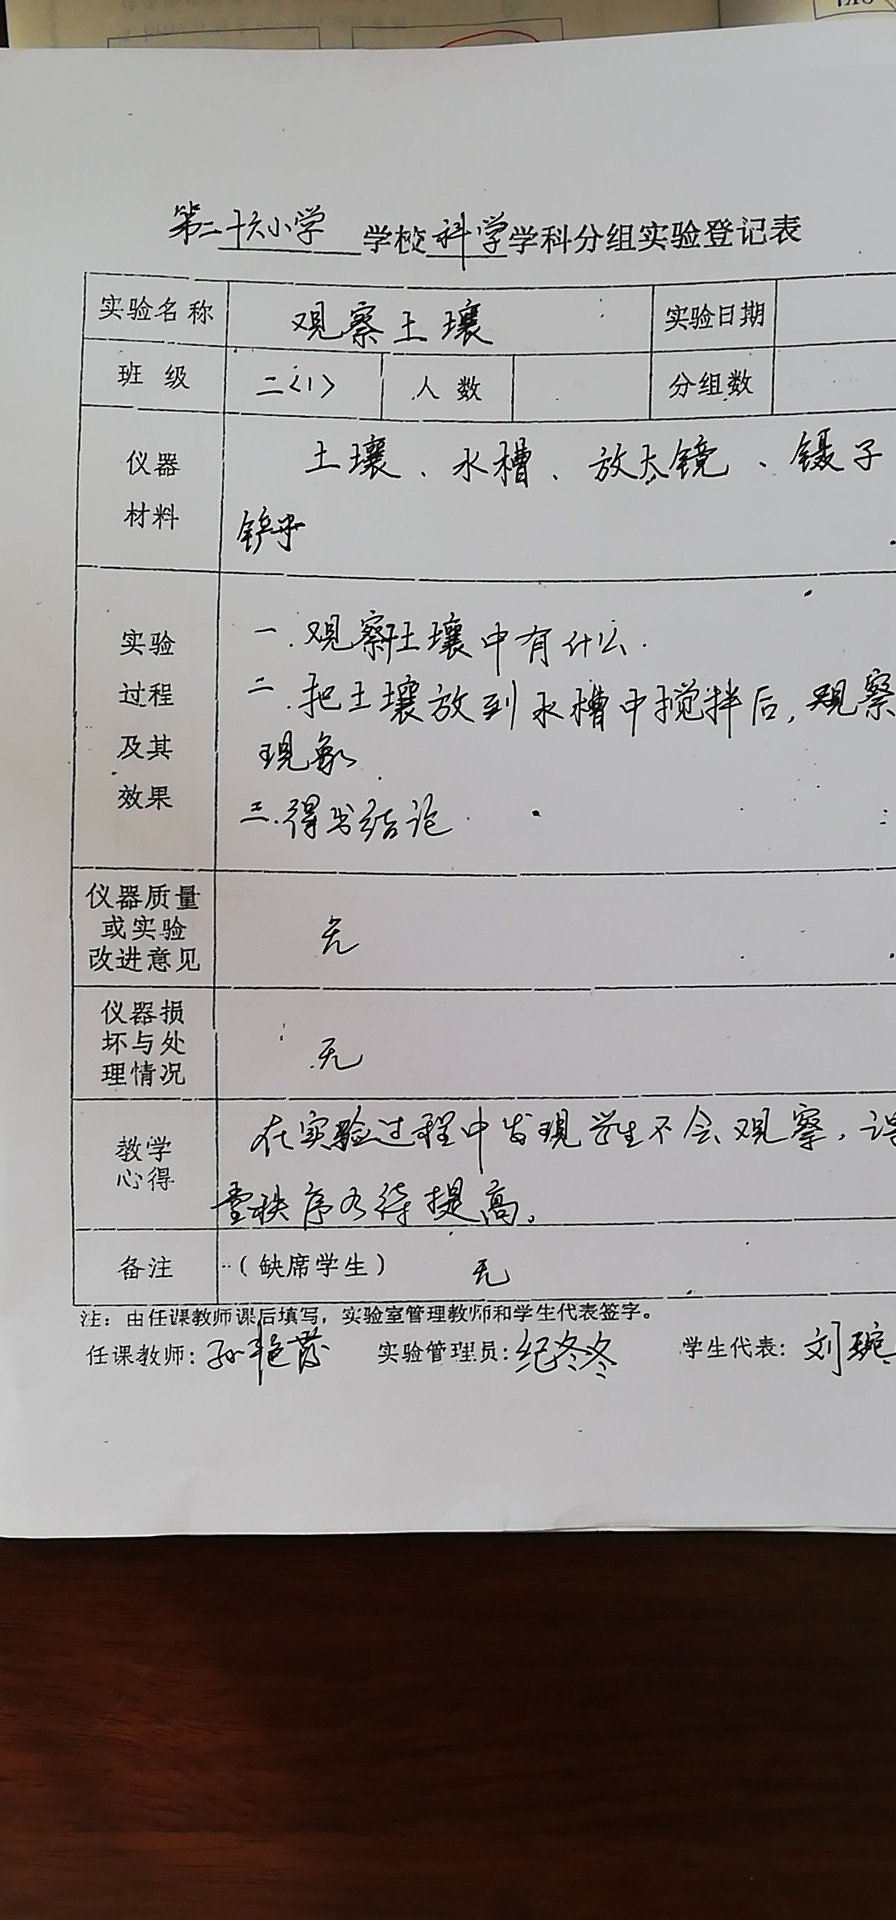 第二十六小学 学校科学学科分组实验登记表
实验名称 观察土壤 实验日期
班 级 二〈1〉 人 数 分组数
仪器 土壤、水槽、放大镜、镊子
材料 铲子
实验 一.观察土壤中有什么.
过程 二.把土壤放到水槽中搅拌后,观察
及其 现象
效果 三.得出结论
仪器质量
或实验 无
改进意见
仪器损
坏与处 无
理情况
教学 在实验过程中发现学生不会观察,课
心得 堂秩序有待提高。
备注 (缺席学生) 无
注:由任课教师课后填写,实验室管理教师和学生代表签字。
任课教师:孙艳 实验管理员:纪冬冬 学生代表:刘琬